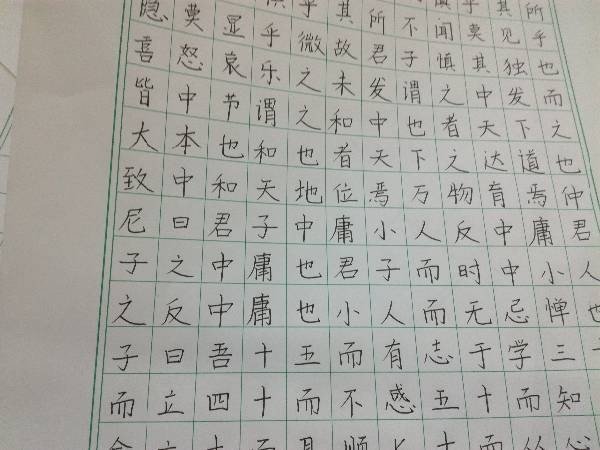 慎乎其所
乎其所不闻莫见乎
隐莫显乎微故君子慎其独也
喜怒哀乐之未发谓之中发而
皆中节谓之和中也者天下之
大本也和也者天下之达道也
致中和天地位焉万物育焉仲
尼曰君子中庸小人反中庸君
子之中庸也君子而时中小人
之反中庸也小人而无忌惮也
子曰吾十五而有志于学三十
而立四十而不感五十而知
命六十而耳顺七十而从心